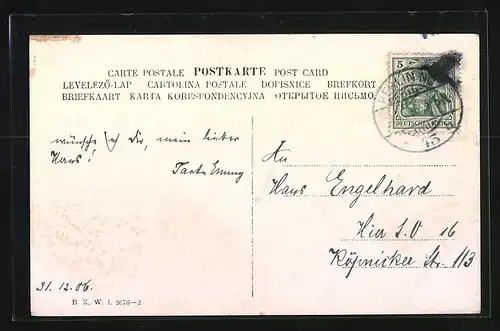 CARTE POSTALE POSTKARTE POST CARD
LEVELEZŐ-LAP CARTOLINA POSTALE DOPISNICE BREFKORT
BRIEFKAART KARTA KORESPONDENCYJNA ОТКРЫТОЕ ПИСЬМО
5
BERLIN
DEUTSCHES REICH
wünsche ich dir, mein lieber
Hans!
Tante Emmy
An
Hans Engelhard
Hier S.O 16
Köpnicker Str. 113
31.12.06.
B K. W. I. 2676-2